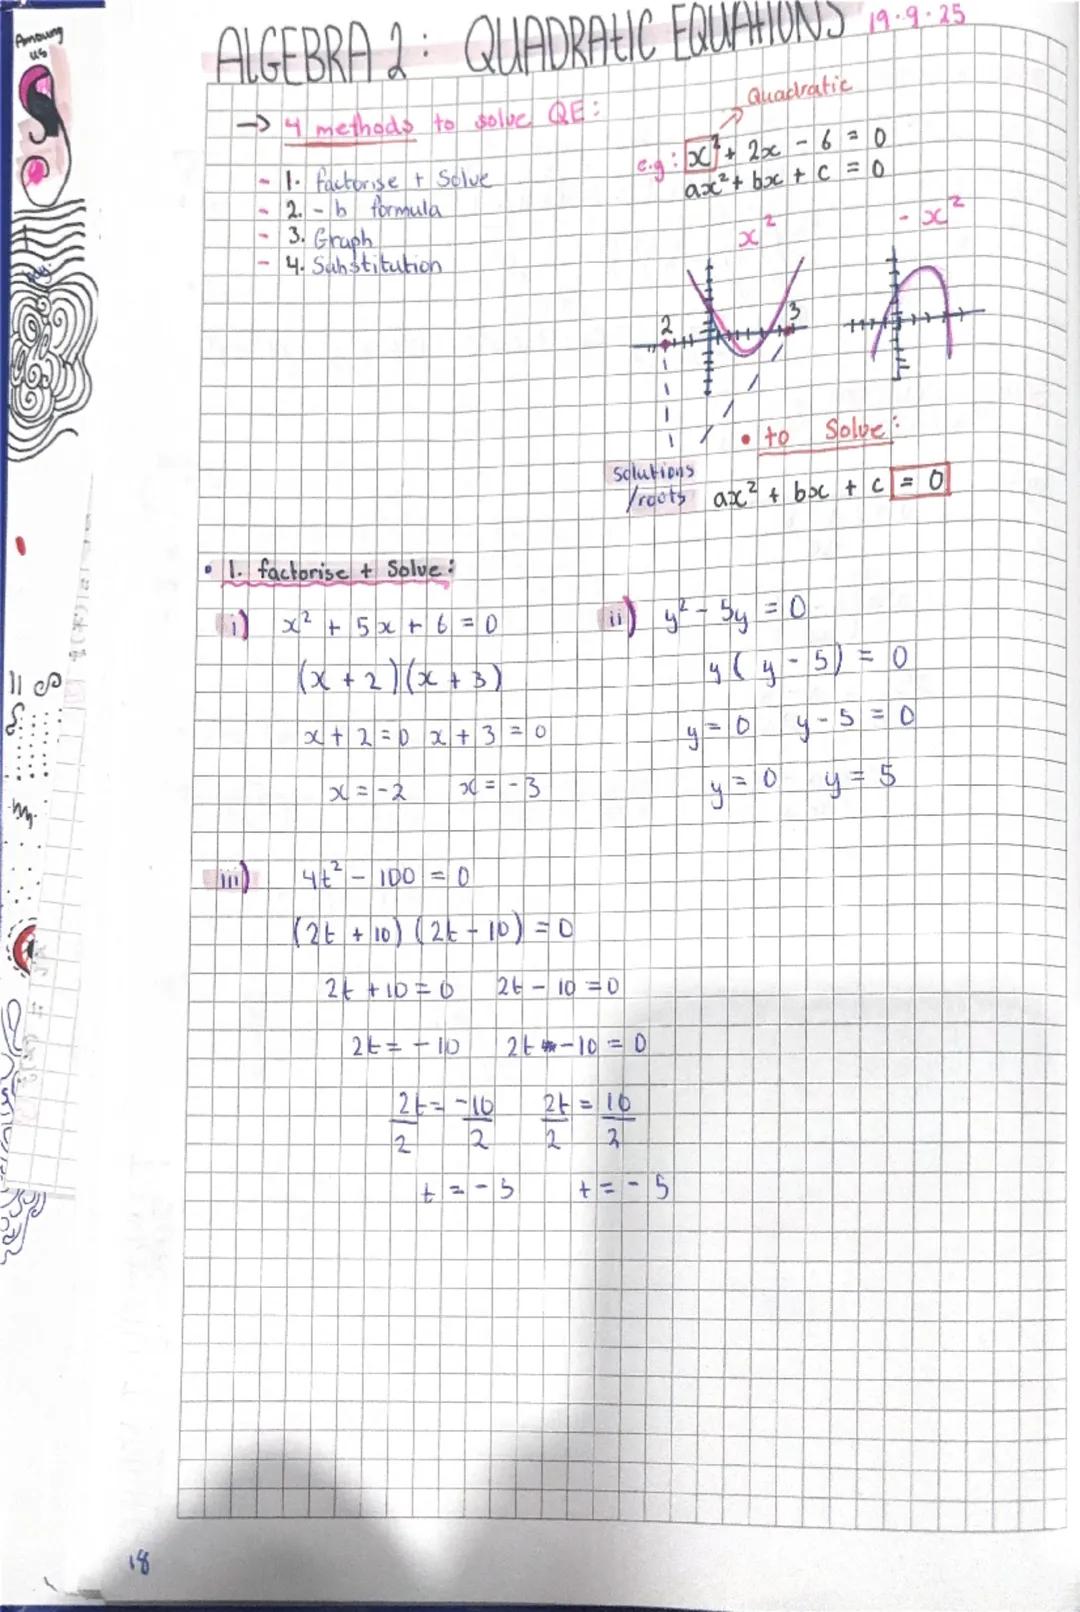 Amoung
us
ALGEBRA 2: QUADRATIC EQUATIONS 19.9.25
→ 4 methods to solve QE:
- 1. factorise + Solve
- 2. - b formula
- 3. Graph
- 4. Substitution
Quadratic
e.g: x² + 2x - 6 = 0
ax² + bx + c = 0
x²
- x²
2
3
solutions
/roots
• to Solve:
ax² + bx + c = 0
• 1. factorise + Solve:
i) x² + 5x + 6 = 0
(x + 2)(x + 3)
x + 2 = 0 x + 3 = 0
x = -2 x = -3
ii) y² - 5y = 0
y(y - 5) = 0
y = 0 y - 5 = 0
y = 0 y = 5
iii) 4t² - 100 = 0
(2t + 10)(2t - 10) = 0
2t + 10 = 0 2t - 10 = 0
2t = -10 2t - 10 = 0
2t = -10 2t = 10
2 2 2 2
t = -5 t = -5
18